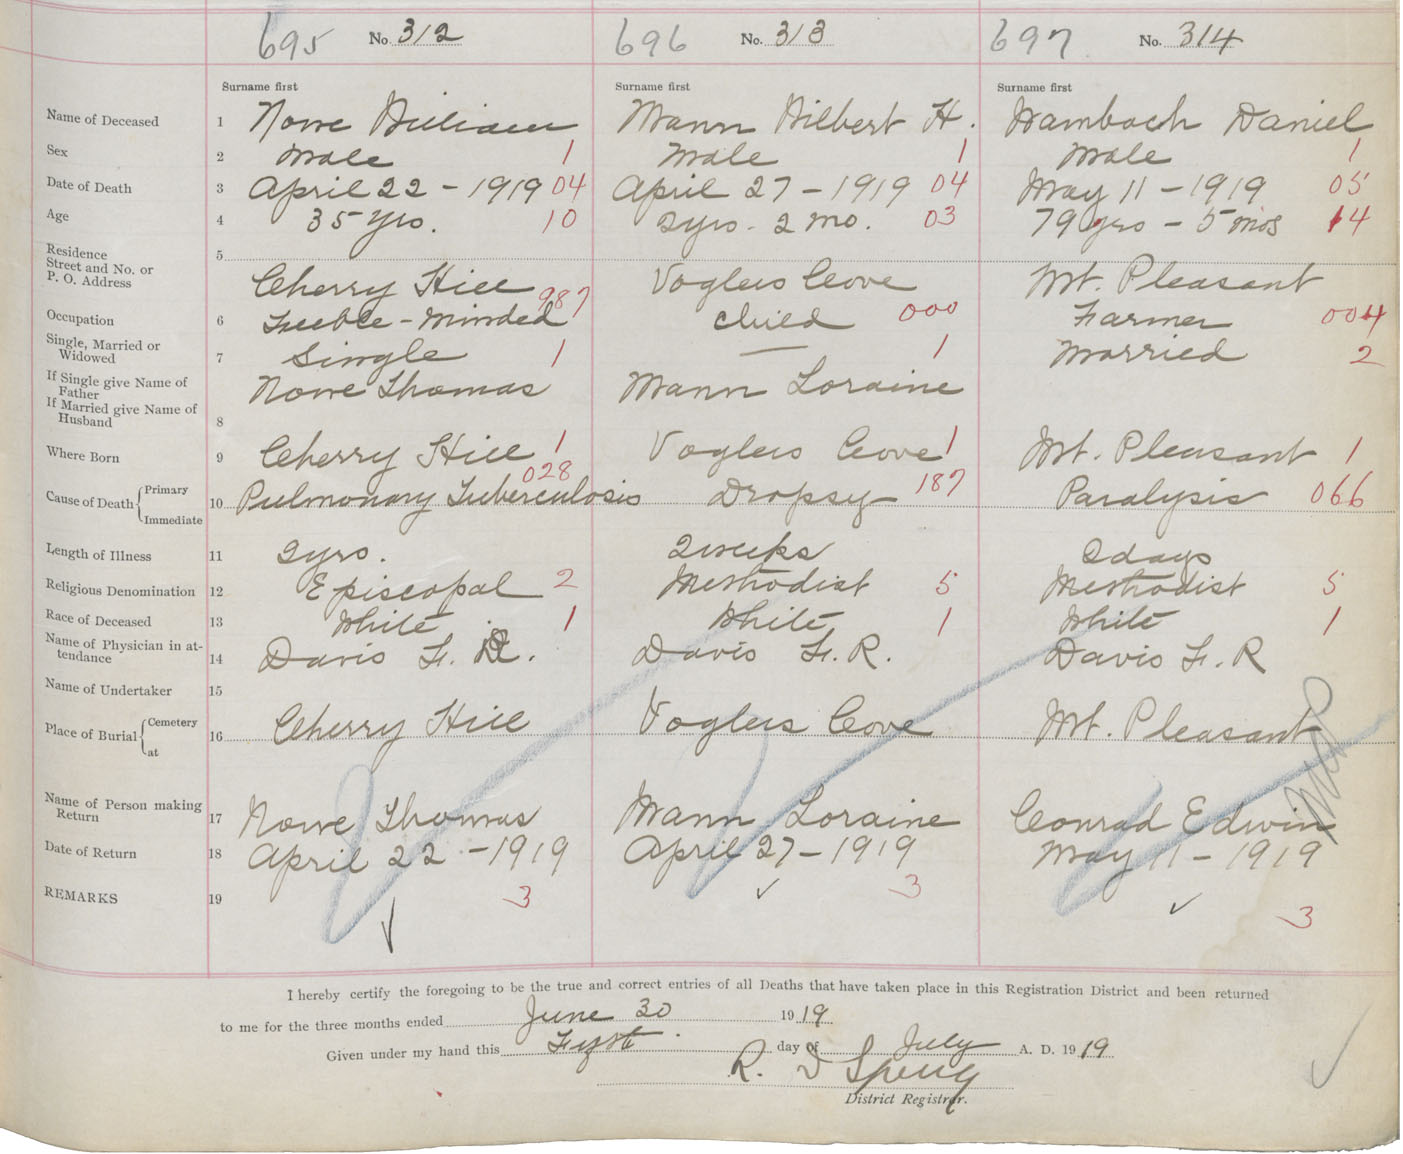 695 No. 312 696 No. 313 697 No. 314
Surname first Surname first Surname first
Name of Deceased 1 Nowe William Mann Hilbert H. Wambach Daniel
Sex 2 Male 1 Male 1 Male 1
Date of Death 3 April 22 - 1919 04 April 27 - 1919 04 May 11 - 1919 05
Age 4 35 yrs. 10 2yrs. 2 mo. 03 79 yrs - 5 mos 14
Residence
Street and No. or
P. O. Address 5 Cherry Hill Voglers Cove Mt. Pleasant
Occupation 6 Feeble-Minded 987 child 000 Farmer 004
Single, Married or
Widowed 7 Single 1 — 1 Married 2
If Single give Name of
Father Nowe Thomas Mann Loraine
If Married give Name of
Husband 8
Where Born 9 Cherry Hill 1 Voglers Cove 1 Mt. Pleasant 1
Cause of Death { Primary Immediate 10 Pulmonary Tuberculosis 028 Dropsy 187 Paralysis 066
Length of Illness 11 2yrs. 2weeks 2days
Religious Denomination 12 Episcopal 2 Methodist 5 Methodist 5
Race of Deceased 13 White 1 White 1 White 1
Name of Physician in at-
tendance 14 Davis F. R. Davis F. R. Davis F. R
Name of Undertaker 15
Place of Burial { Cemetery at 16 Cherry Hill Voglers Cove Mt. Pleasant
Name of Person making
Return 17 Nowe Thomas Mann Loraine Conrad Edwin
Date of Return 18 April 22 - 1919 April 27 - 1919 May 11 - 1919
REMARKS 19 3 3 3
I hereby certify the foregoing to be the true and correct entries of all Deaths that have taken place in this Registration District and been returned
to me for the three months ended June 30 1919
Given under my hand this First day of July A. D. 1919
R. D
District Registrar.